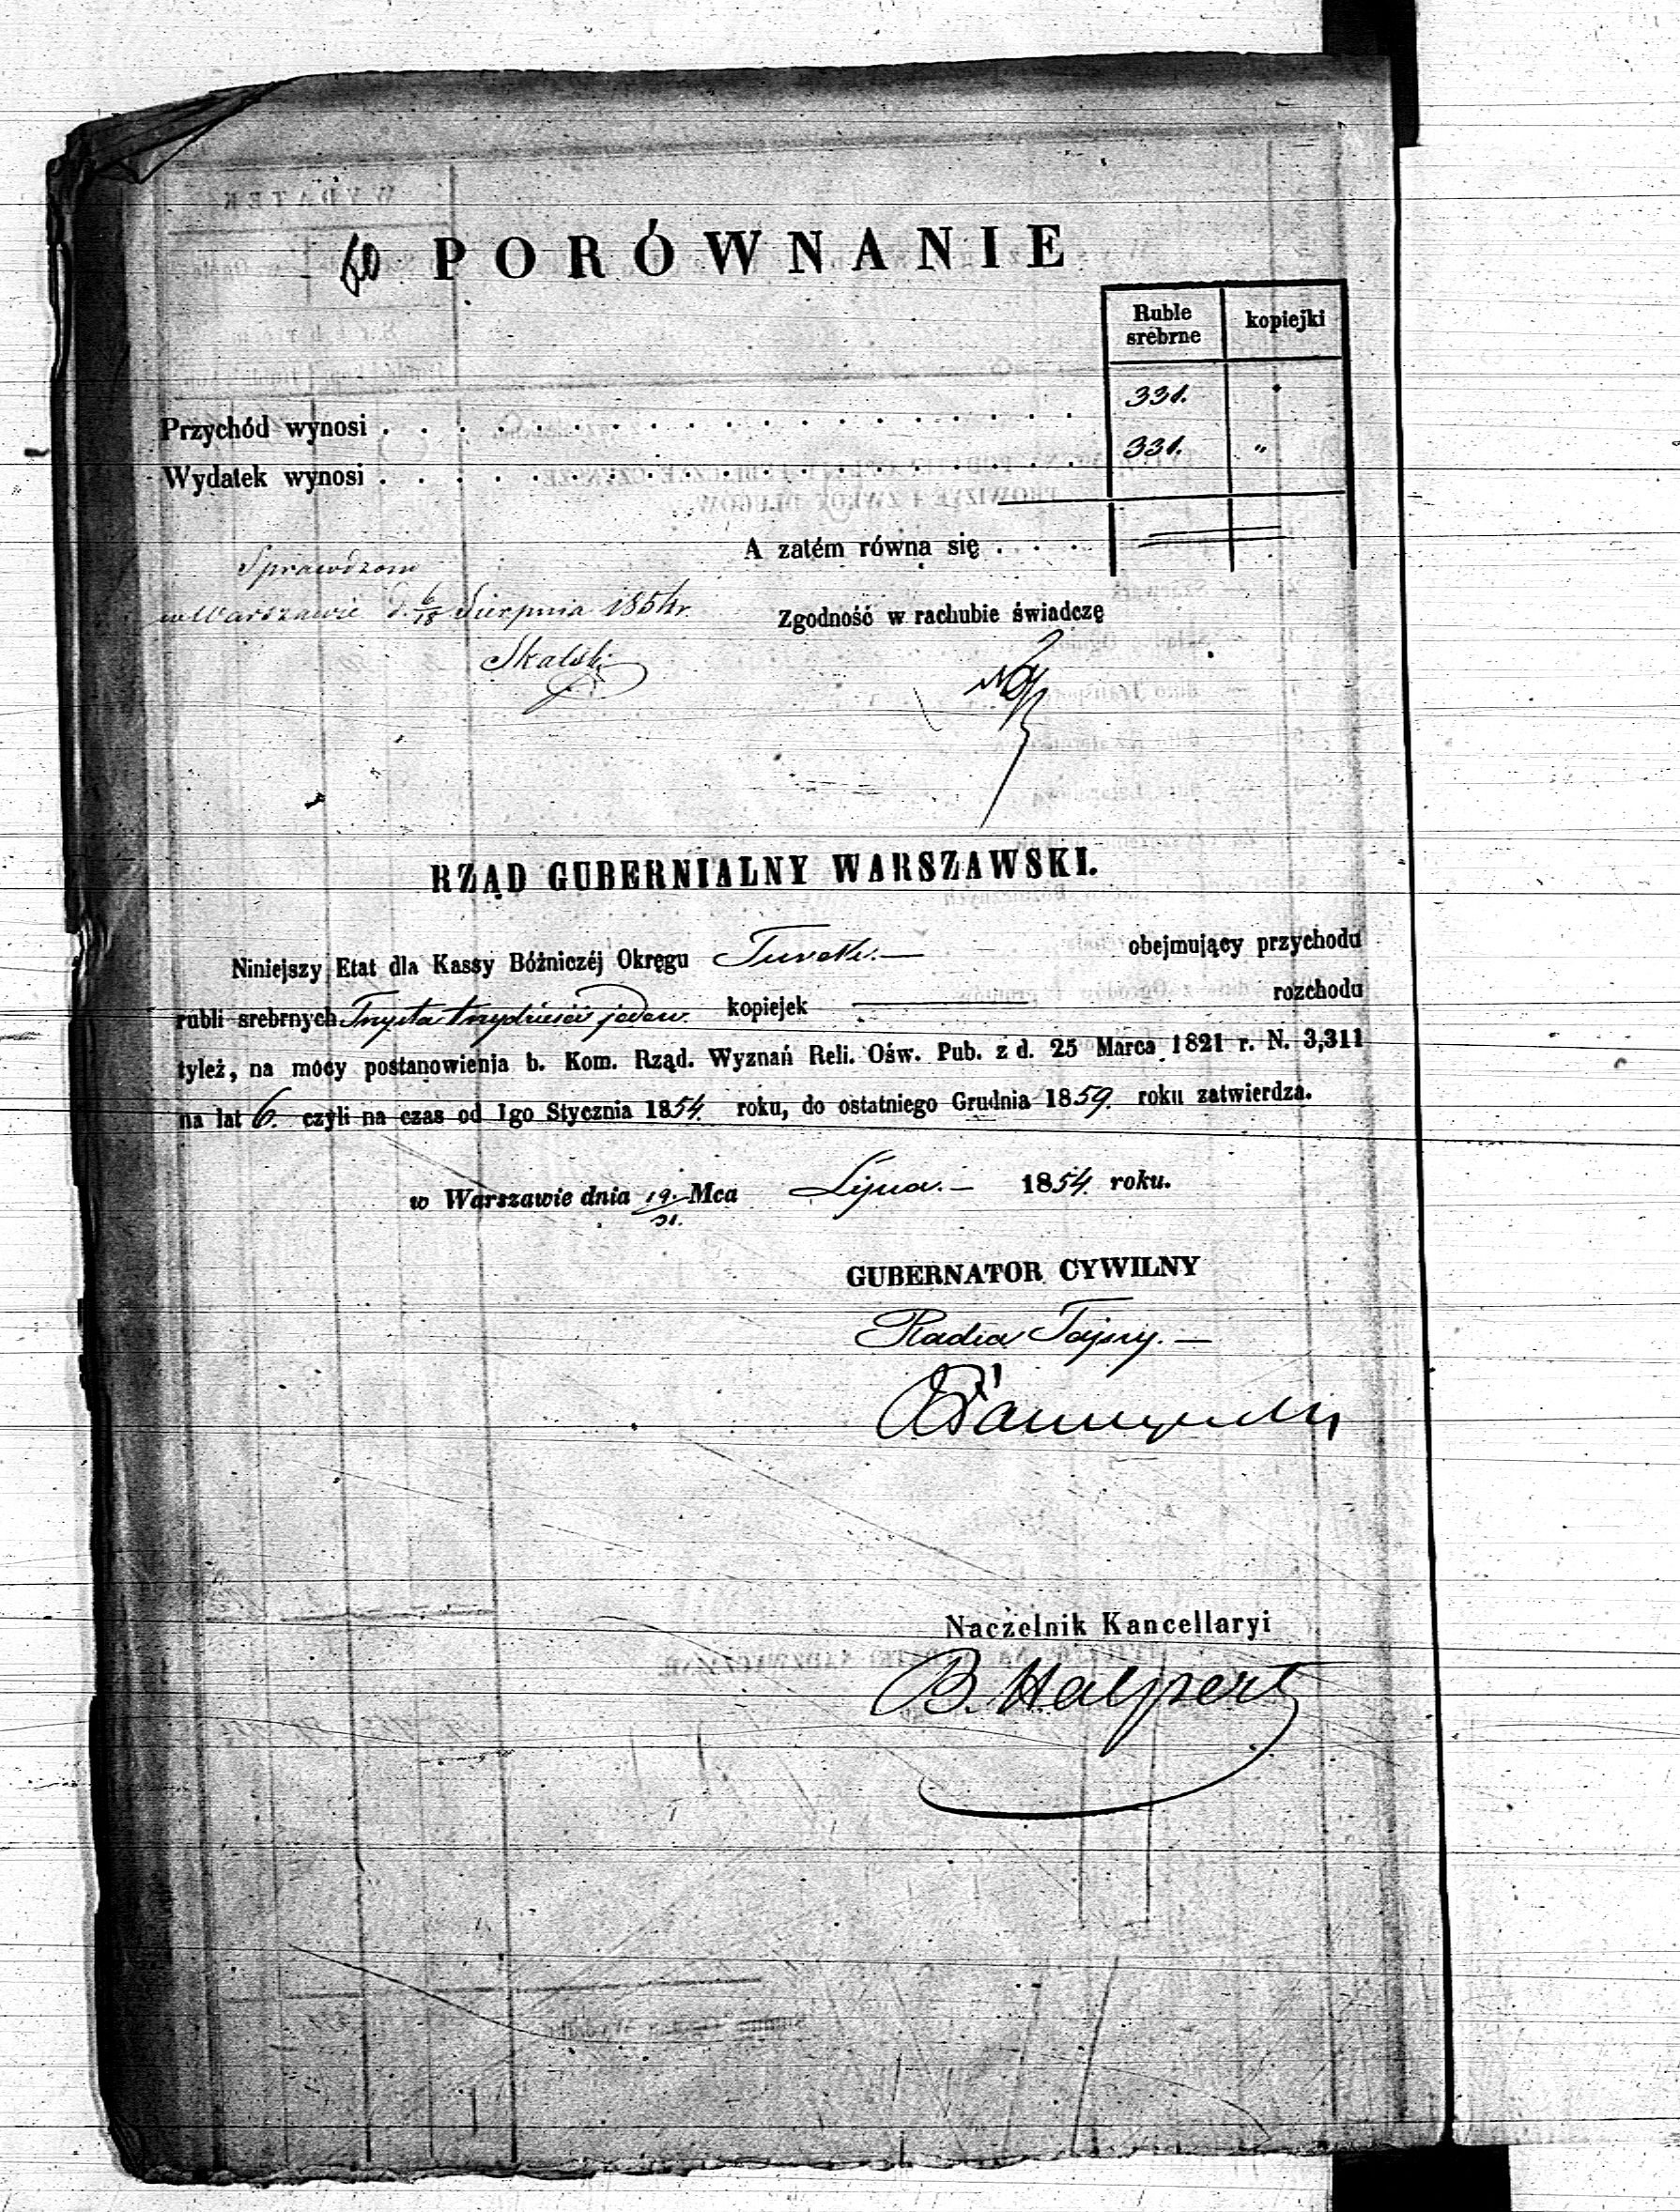 60 PORÓWNANIE
Ruble srebrne kopiejki
Przychód wynosi . . . . . . . . . . . . . . . . . . . 331.
Wydatek wynosi . . . . . . . . . . . . . . . . . . . 331. "
A zatém równa się . . .
Sprawdzono
w Warszawie d. 6/18 Sierpnia 1854 r.
Skalski
Zgodność w rachubie świadczę
RZĄD GUBERNIALNY WARSZAWSKI.
Niniejszy Etat dla Kassy Bóżniczéj Okręgu Turek.— obejmujący przychodu
rubli srebrnych Trzysta trzydzieści jeden. kopiejek — rozchodu
tyleż, na mocy postanowienia b. Kom. Rząd. Wyznań Reli. Ośw. Pub. z d. 25 Marca 1821 r. N. 3,311
na lat 6. czyli na czas od 1go Stycznia 1854. roku, do ostatniego Grudnia 1859. roku zatwierdza.
w Warszawie dnia 19/31. Mca Lipca.— 1854. roku.
GUBERNATOR CYWILNY
Radca Tajny.—
Naczelnik Kancellaryi
B. Halpert